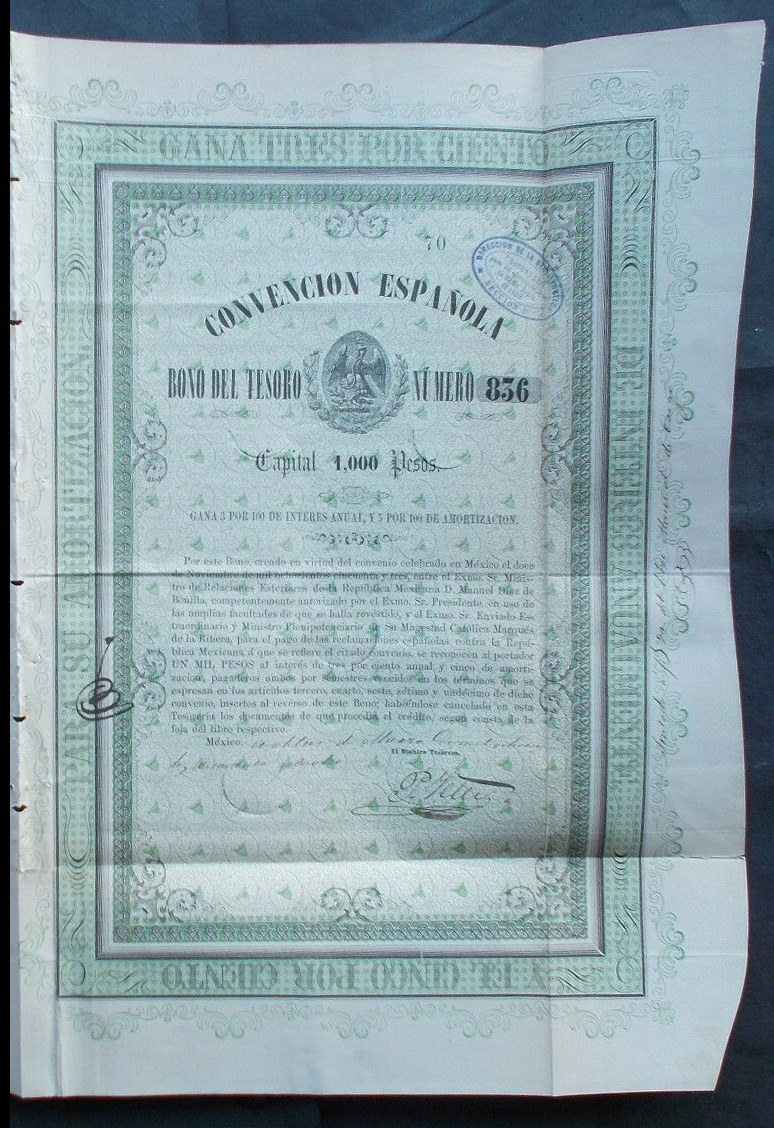 GANA TRES POR CIENTO
DE INTERES ANUALMENTE
Y EL CINCO POR CIENTO
PARA SU AMORTIZACION
70
DIRECCION DE LA
SECCION
CONVENCION ESPAÑOLA
BONO DEL TESORO NÚMERO 836
Capital 1,000 Pesos.
GANA 3 POR 100 DE INTERES ANUAL, Y 5 POR 100 DE AMORTIZACION.
Por este Bono, creado en virtud del convenio celebrado en México el doce
de Noviembre de mil ochocientos cincuenta y tres, entre el Exmo. Sr. Minis-
tro de Relaciones Esteriores de la República Mexicana D. Manuel Diez de
Bonilla, competentemente autorizado por el Exmo. Sr. Presidente, en uso de
las amplias facultades de que se halla revestido, y el Exmo. Sr. Enviado Es-
traordinario y Ministro Plenipotenciario de Su Magestad Católica Marqués
de la Ribera, para el pago de las reclamaciones españolas contra la Repú-
blica Mexicana, á que se refiere el citado convenio, se reconocen al portador
UN MIL PESOS al interés de tres por ciento anual, y cinco de amorti-
zacion, pagaderos ambos por semestres vencidos en los términos que se
espresan en los artículos tercero, cuarto, sesto, sétimo y undécimo de dicho
convenio, insertos al reverso de este Bono; habiéndose cancelado en esta
Tesorería los documentos de que procedia el crédito, segun consta de la
foja del libro respectivo.
México, de Marzo
El Ministro Tesorero,